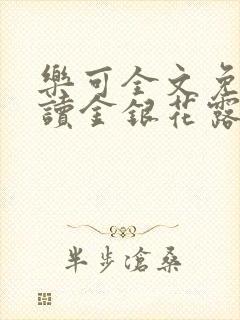 樂可全文免
讀金銀花露
半步滄桑